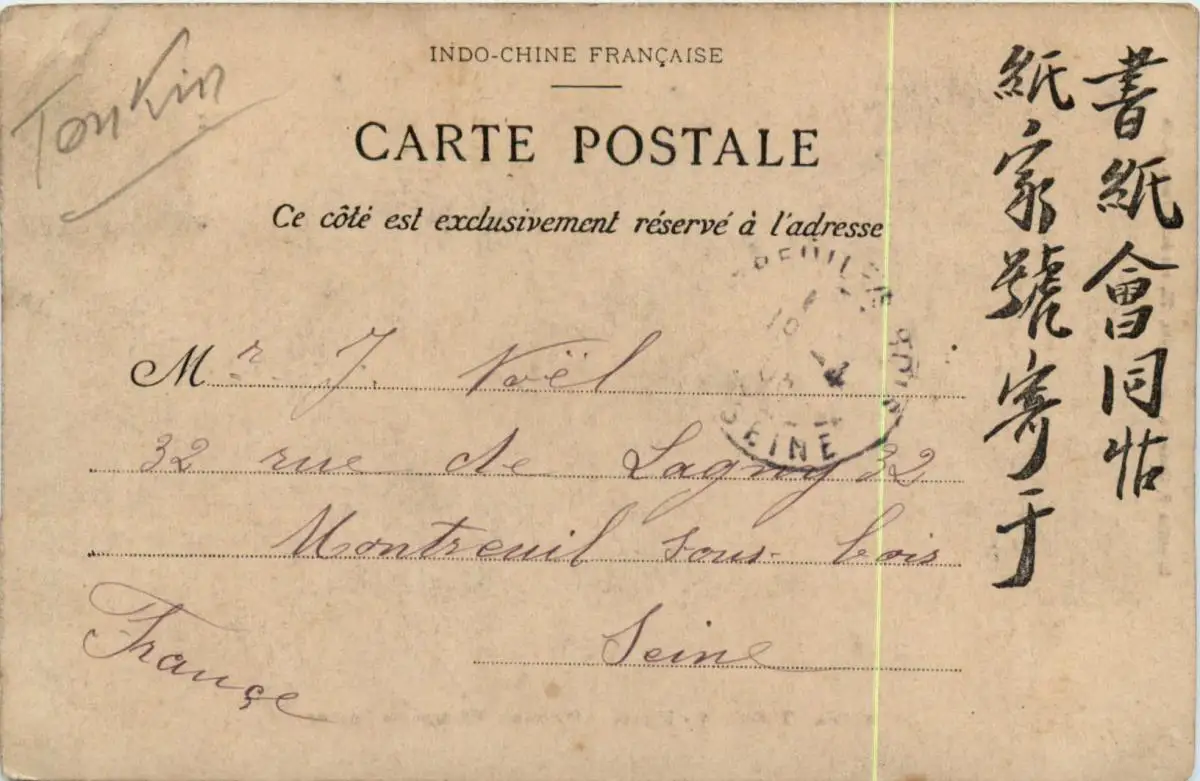 Tonkin
INDO-CHINE FRANÇAISE
CARTE POSTALE
Ce côté est exclusivement réservé à l'adresse
Mr J. Noël
32 rue de Lagny 32
Montreuil sous-bois
Seine
France
SEINE
書紙會同帖
紙家號寄于